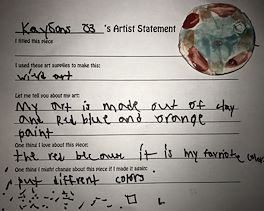 Kaydans 03 's Artist Statement
I titled this piece
I used these art supplies to make this:
wire art
Let me tell you about my art:
My art is made out of clay
and red blue and orange
paint
One thing I love about this piece:
the red because it is my favriote color
One thing I might change about this piece if I made it again:
put diffrent colors